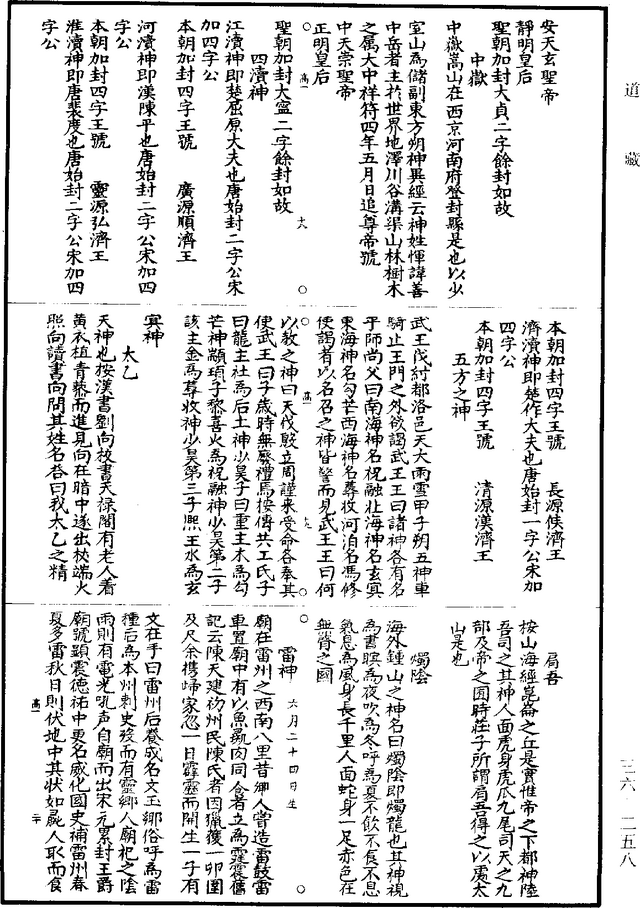 道藏
安天玄聖帝
靜明皇后
聖朝加封大貞二字餘封如故
中嶽
中嶽嵩山在西京河南府登封縣是也以少
室山為儲副東方朔神異經云神姓惲諱善
中岳者主於世界地澤川谷溝渠山林樹木
之屬大中祥符四年五月日追尊帝號
中天崇聖帝
正明皇后
聖朝加封大寧二字餘封如故
四瀆神
江瀆神即楚屈原大夫也唐始封二字公宋
加四字公
本朝加封四字王號　廣源順濟王
河瀆神即漢陳平也唐始封二字公宋加四
字公
本朝加封四字王號　靈源弘濟王
淮瀆神即唐裴度也唐始封二字公宋加四
字公
本朝加封四字王號　長源倏濟王
濟瀆神即楚作大夫也唐始封一字公宋加
四字公
本朝加封四字王號　清源漢濟王
五方之神
武王伐紂都洛邑天大雨雪甲子朔五神車
騎止王門之外欲謁武王王曰諸神各有名
乎師尚父曰南海神名祝融北海神名玄冥
東海神名勾芒西海神名蓐收河泊名馮修
使謁者以名召之神皆警而見武王王曰何
以教之神曰天伐殷立周謹來受命各奉其
使武王曰予歲時無廢禮焉按傳共工氏子
曰龍主社為后土神少昊子曰重主木為勾
芒神顓頊子黎喜火為祝融神少昊第二子
該主金為蓐收神少昊第三子熙主水為玄
冥神
太乙
天神也按漢書劉向校書天祿閣有老人着
黃衣植青藜而進見向在暗中遂出杖端火
照向讀書向問其姓名荅曰我太乙之精
肩吾
按山海經崑崙之丘是實惟帝之下都神陸
吾司之其神人面虎身虎爪九尾司天之九
部及帝之囿時莊子所謂肩吾得之以處太
山是也
燭陰
海外鍾山之神名曰燭陰即燭龍也其神視
為晝瞑為夜吹為冬呼為夏不飲不食不息
氣息為風身長千里人面蛇身一足赤色在
無脊之國
雷神　六月二十四日生
廟在雷州之西南八里昔鄉人嘗造雷鼓雷
車置廟中有以魚彘肉同食者立為霆震舊
記云陳天建初州民陳氏者因獵獲一卵圍
及尺余携歸家忽一日霹靂而開生一子有
文在手曰雷州后養成名文玉鄉俗乎為雷
種后為本州刺史歿而有靈鄉人廟祀之陰
雨則有電光吼声自廟而出宋元累封王爵
廟號顯震德祐中更名威化國史補雷州春
夏多雷秋日則伏地中其狀如彘人取而食
三六　二五八